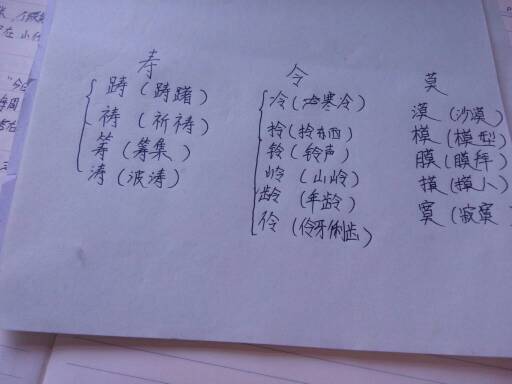 寿
踌（踌躇）
祷（祈祷）
筹（筹集）
涛（波涛）
令
冷（寒冷）
拎（拎东西）
铃（铃声）
岭（山岭）
龄（年龄）
伶（伶牙俐齿）
莫
漠（沙漠）
模（模型）
膜（膜拜）
摸（摸人）
寞（寂寞）